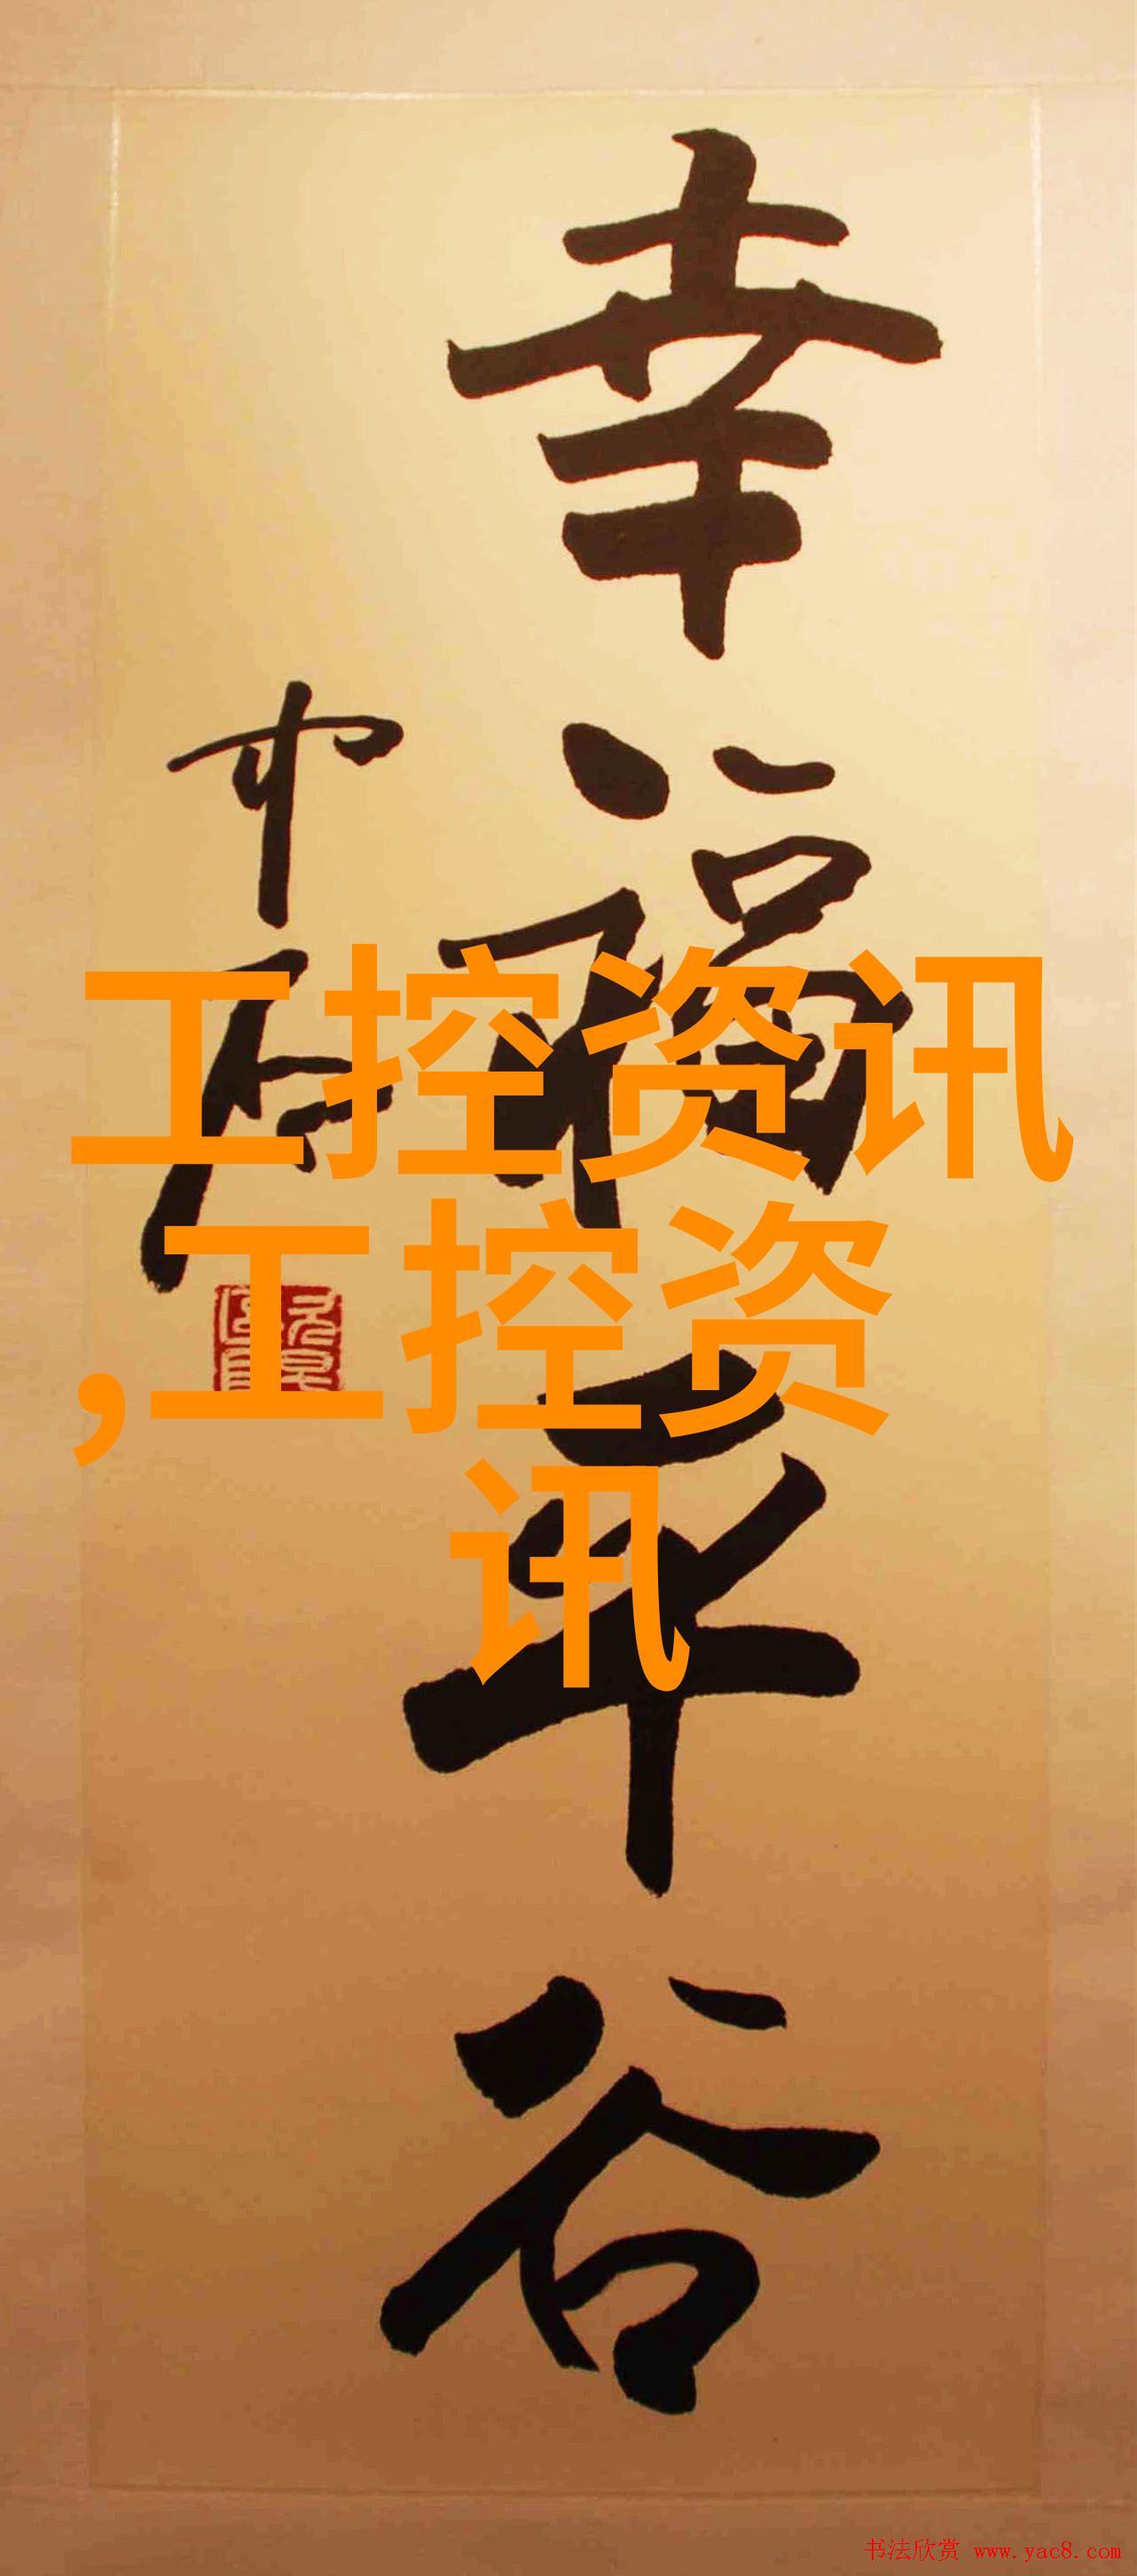 幸福平谷
工控资讯
,工控资
讯
书法欣赏 www.yac8.com